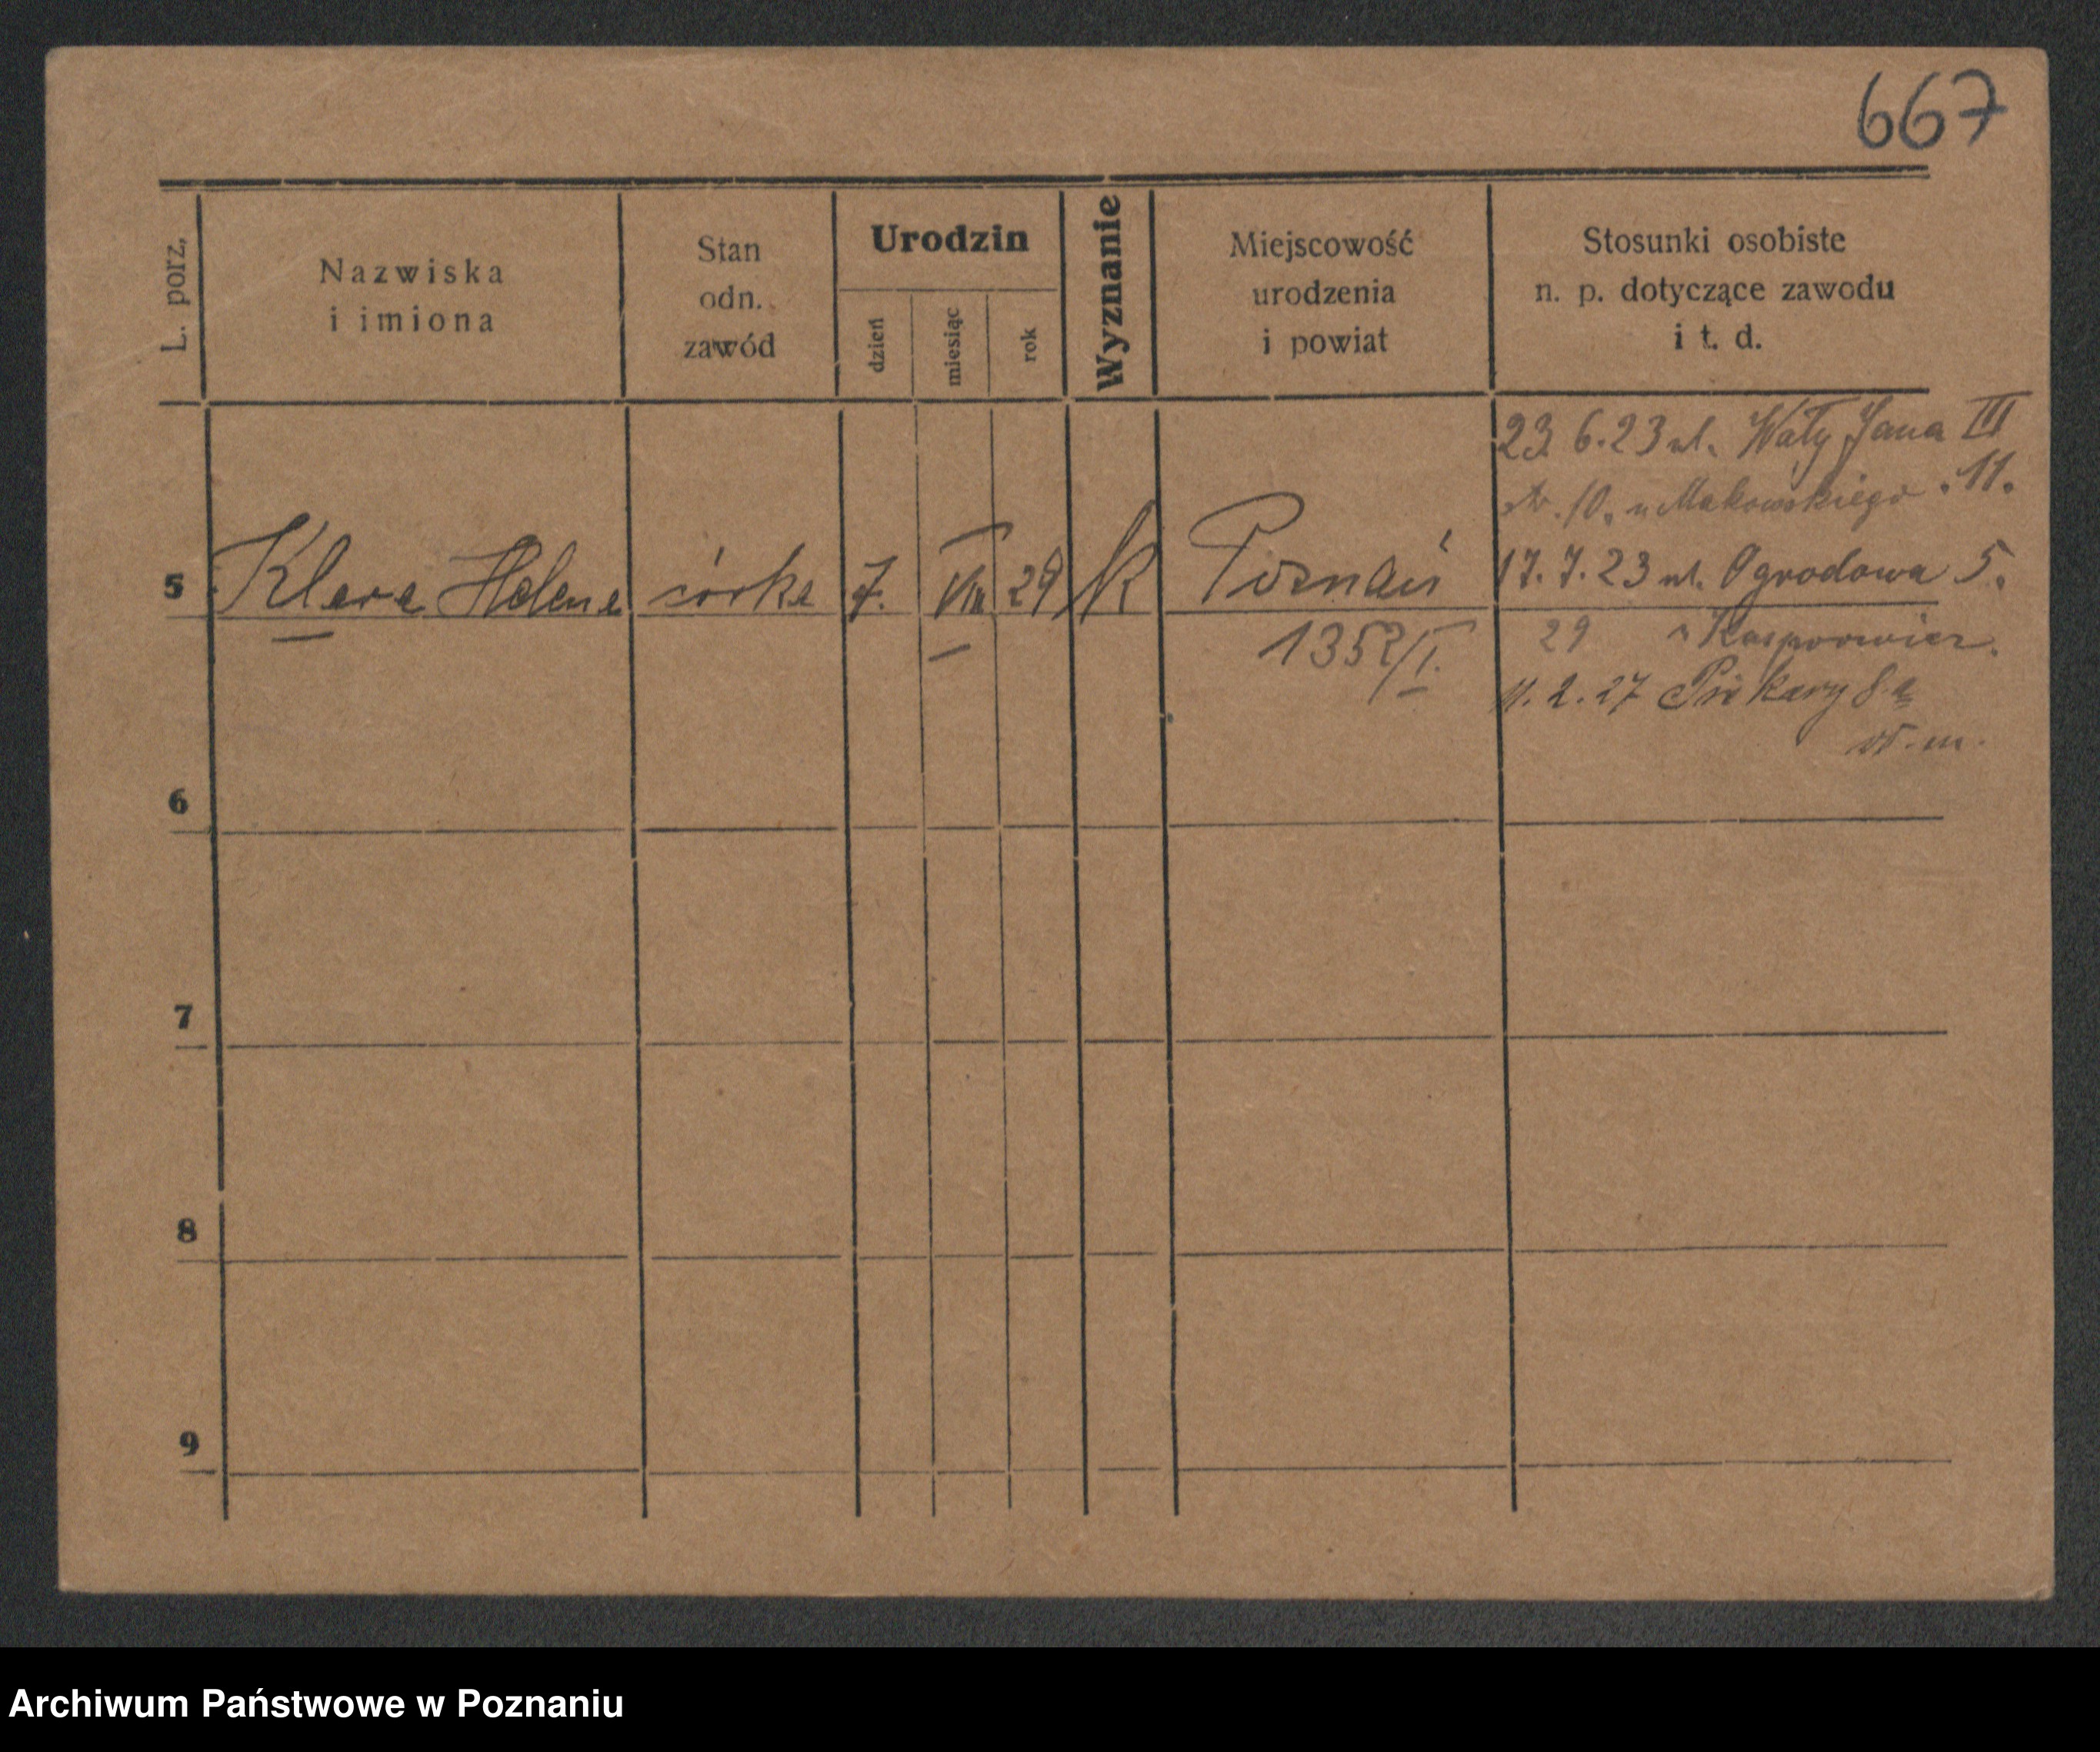 667
L. porz.
Nazwiska
i imiona
Stan
odn.
zawód
Urodzin
dzień
miesiąc
rok
Wyznanie
Miejscowość
urodzenia
i powiat
Stosunki osobiste
n. p. dotyczące zawodu
i t. d.
23. 6. 23 ul. Wały Jana III
10. u Makowskiego . 11.
5 Klara Helena córka 7. VIII 29 k Poznań
17. 7. 23 ul. Ogrodowa 5.
1352/I.
29
11. 2. 27 Piekary 8
6
7
8
9
Archiwum Państwowe w Poznaniu